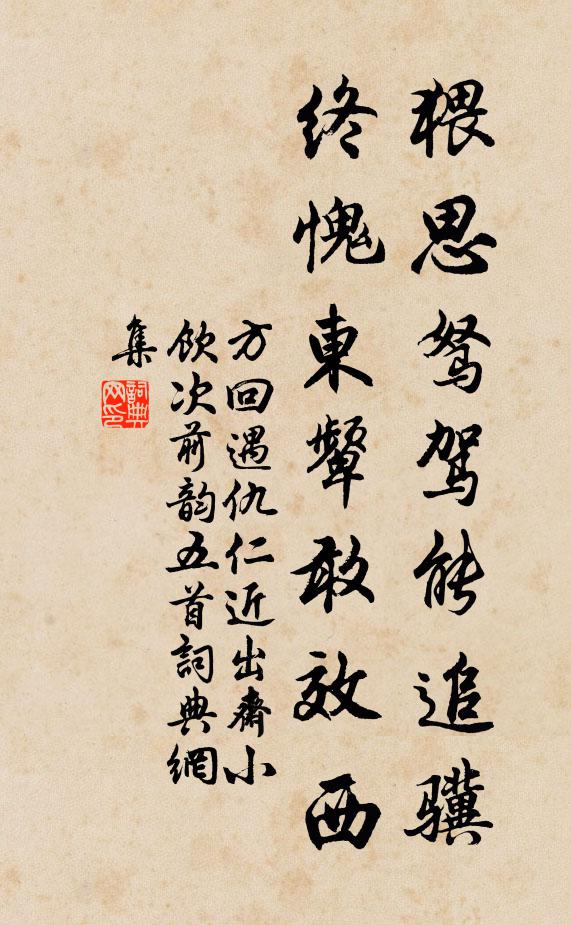 猥思驽驾能追骥
终愧東颦敢效西
方回遇仇仁近出齋小
飲次前韵五首詞典網
集
詞典
网印